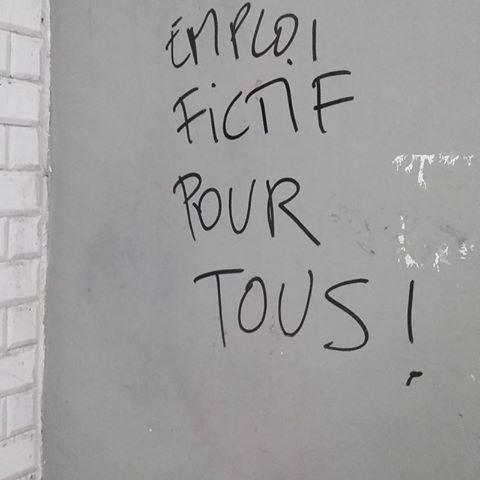 EMPLOI
FiCTIF
POUR
TOUS !